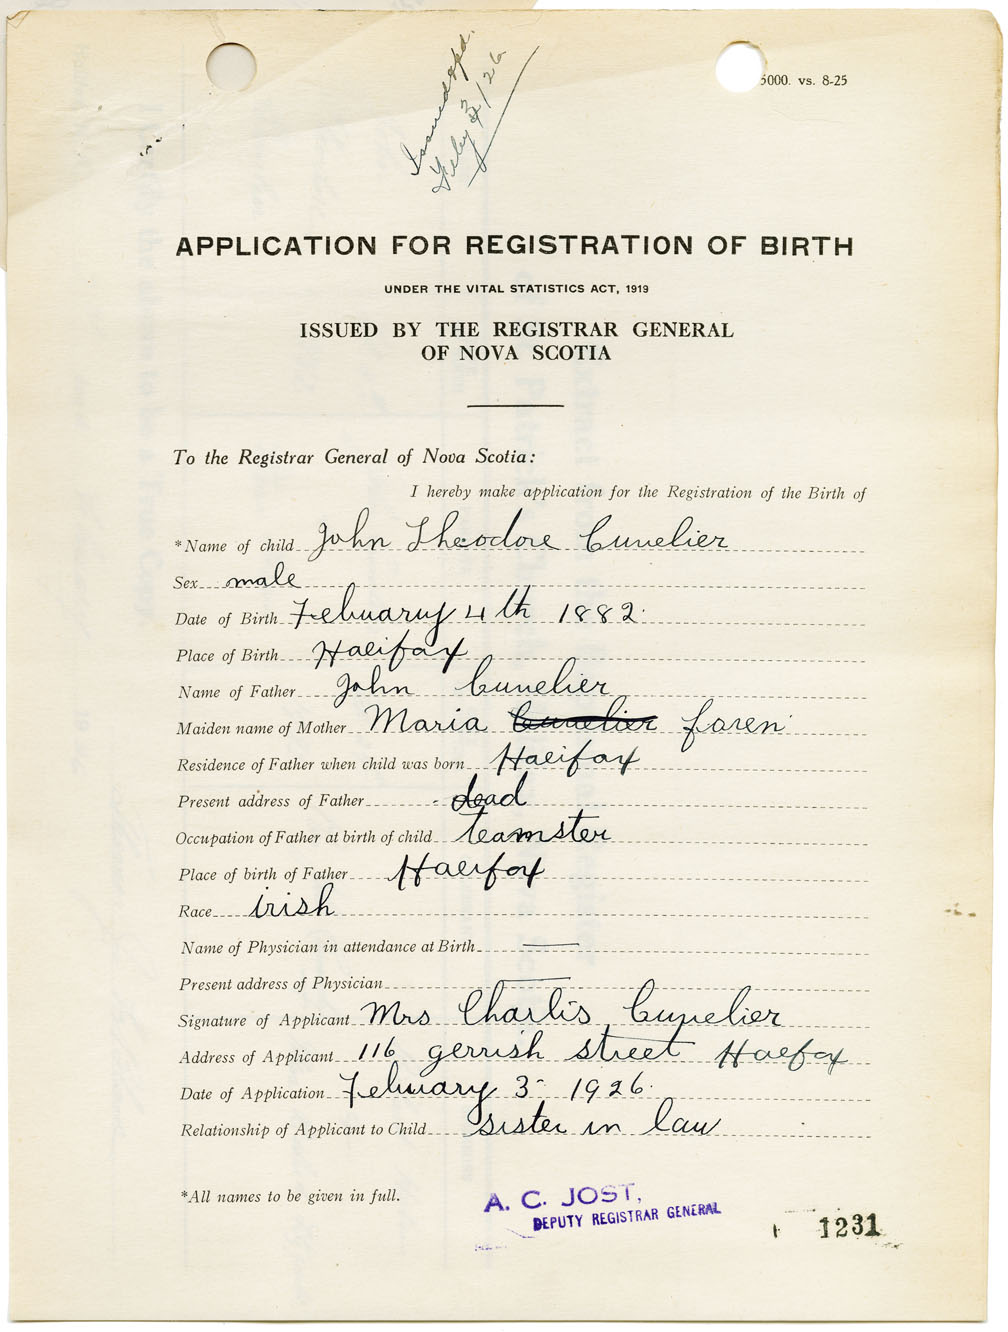 Issued opd.
Feby 3/26
5000. vs. 8-25
APPLICATION FOR REGISTRATION OF BIRTH
UNDER THE VITAL STATISTICS ACT, 1919
ISSUED BY THE REGISTRAR GENERAL
OF NOVA SCOTIA
To the Registrar General of Nova Scotia:
I hereby make application for the Registration of the Birth of
*Name of child John Theodore Cunelier
Sex male
Date of Birth February 4th 1882.
Place of Birth Halifax
Name of Father John Cunelier
Maiden name of Mother Maria Cunelier foren
Residence of Father when child was born Halifax
Present address of Father - dead
Occupation of Father at birth of child teamster
Place of birth of Father Halifax
Race irish
Name of Physician in attendance at Birth —
Present address of Physician —
Signature of Applicant Mrs Charlis Cunelier
Address of Applicant 116 gerrish street Haefax
Date of Application February 3- 1926.
Relationship of Applicant to Child sister in law
*All names to be given in full.
A. C. JOST,
DEPUTY REGISTRAR GENERAL
1231